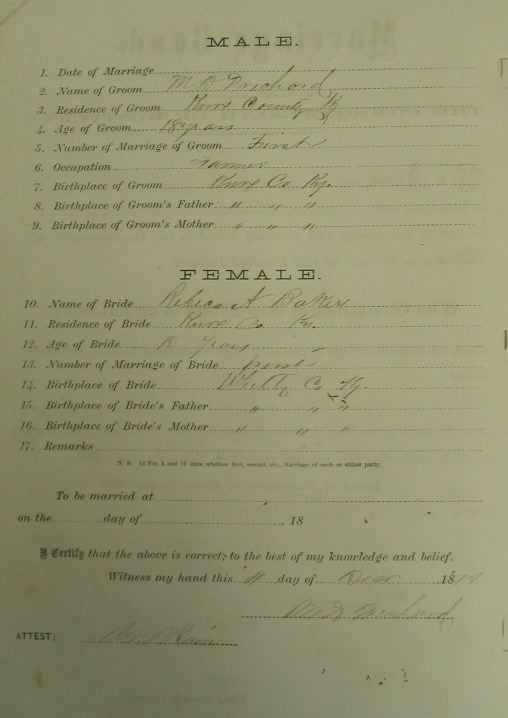 MALE.
1. Date of Marriage
2. Name of Groom M D
3. Residence of Groom Knox County Ky
4. Age of Groom 18 years
5. Number of Marriage of Groom First
6. Occupation Farmer
7. Birthplace of Groom Knox Co Ky.
8. Birthplace of Groom's Father " " "
9. Birthplace of Groom's Mother " " "
FEMALE.
10. Name of Bride Rebeca A Baker
11. Residence of Bride Knox Co Ky.
12. Age of Bride 18 years
13. Number of Marriage of Bride first
14. Birthplace of Bride Whitly Co Ky.
15. Birthplace of Bride's Father " " "
16. Birthplace of Bride's Mother " " "
17. Remarks
N. B. At Nos. 5 and 13 state whether first, second, etc., Marriage of each or either party.
To be married at
on the day of , 18
I Certify that the above is correct, to the best of my knowledge and belief.
Witness my hand this day of 18
ATTEST: